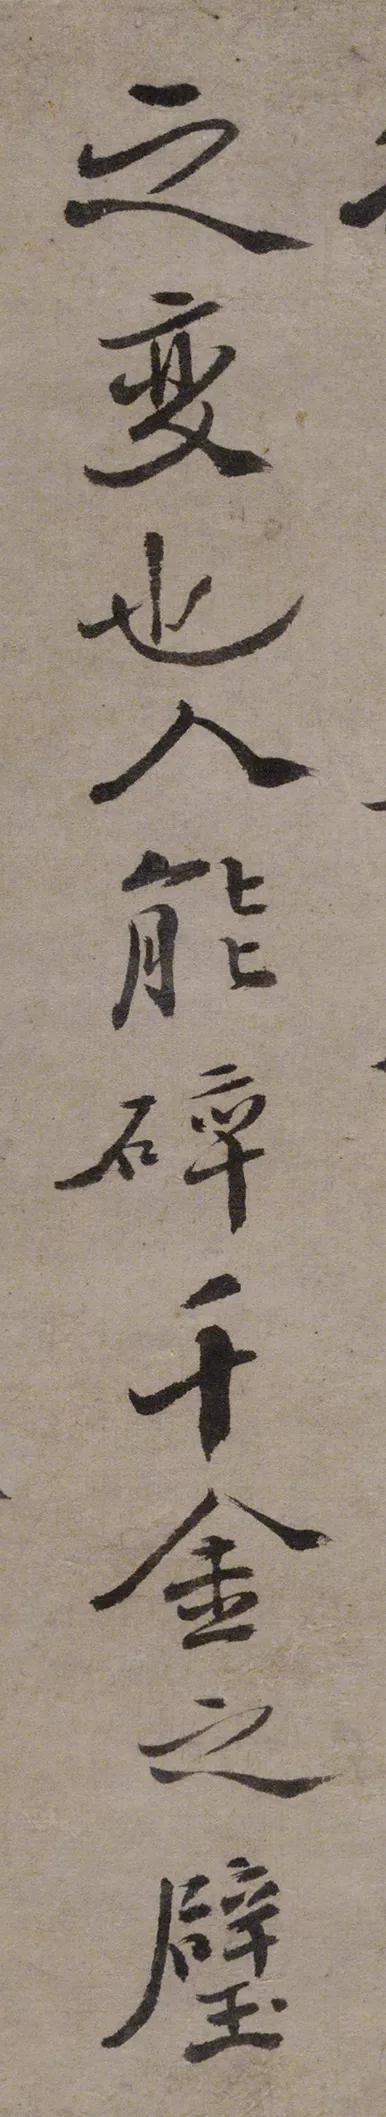 之变也人能碎千金之璧